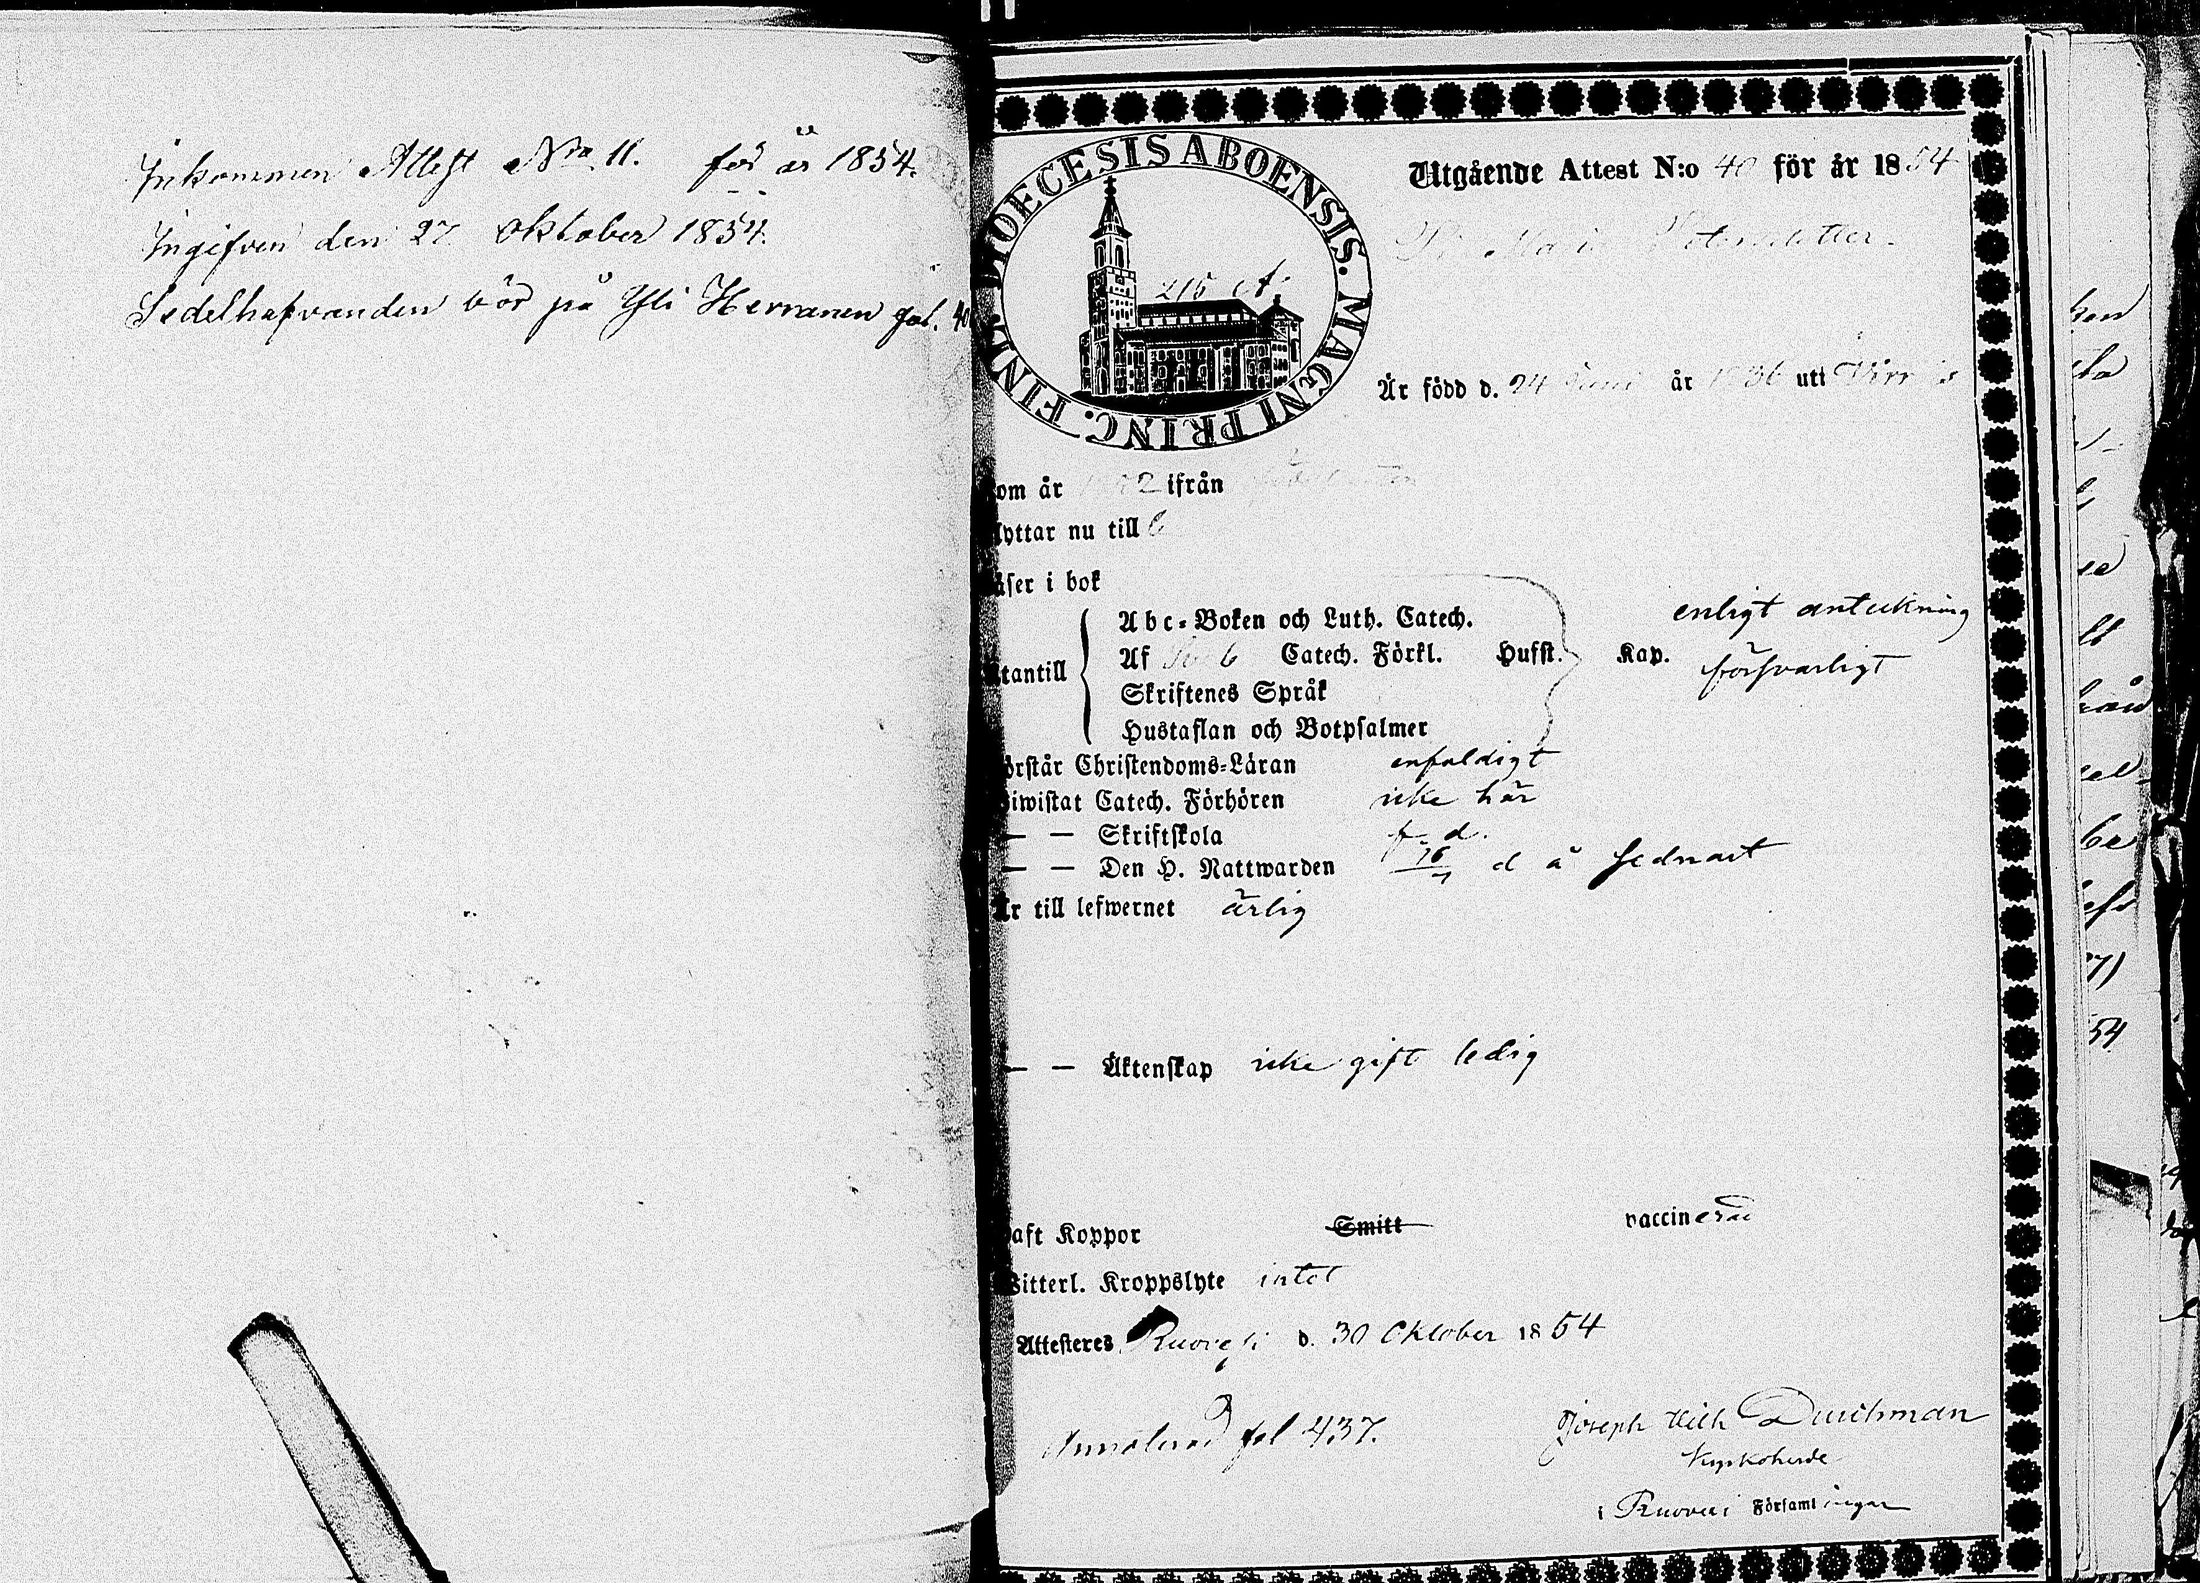 Inkommen Attest Nro. 11. för år 1854.
Ingifven den 27 Oktober 1854.
Sedelhafvanden bör på Yli Herranen fol. 40
DIOECESIS ABOENSIS. MAGNI PRINC. FINL.
216
Utgående Attest N:o 40 för år 1854
Är född d. 24 Juni år 1836 uti
om år ifrån
yttar nu till
äser i bok
Abc-Boken och Luth. Catech. enligt anteckning
tantill Af Catech. Förkl. Husst. Kap. försvarligt
Skriftenes Språk
Hustaflan och Botpsalmer
örstår Christendoms-Läran enfaldigt
iwistat Catech. Förhören icke här
— — Skriftskola f. d.
— — Den H. Nattwarden d å sednast
Är till lefwernet ärlig
— — Äktenskap icke gift ledig
aft Koppor Smitt vaccinerad
Witterl. Kroppslyte intet
Attesteres Ruovesi d. 30 Oktober 1854
Annoterad fol 437.
Joseph Wilh Durchman
Kyrkoherde
i Ruovesi Församlingar